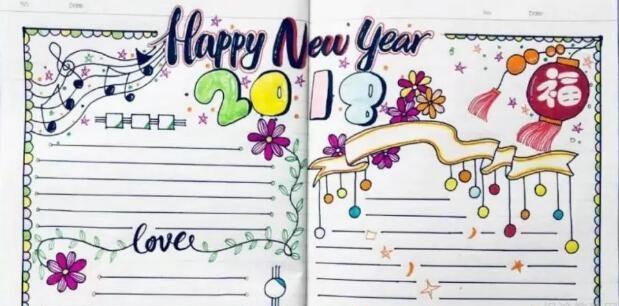 Happy New Year
2018
福
love